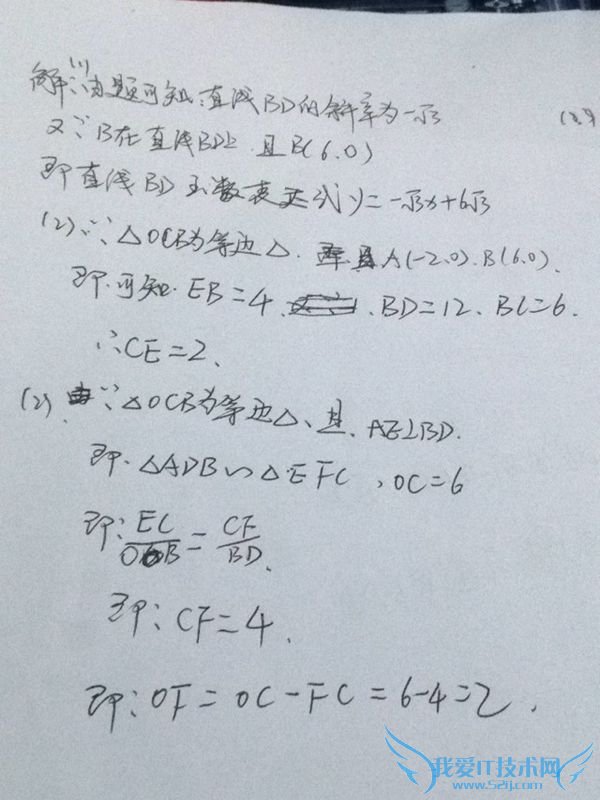 解:(1)∵由题可知:直线BD的斜率为-√3
又∵B在直线BD上 且B(6,0)
即直线BD 函数表达式y=-√3x+6√3
(2)∵△OCB为等边△. 且A(-2.0).B(6.0).
即.可知.EB=4. .BD=12、BC=6.
∴CE=2、
(2) ∵△OCB为等边△、且、AE⊥BD.
即.△ADB∽△EFC ,OC=6
即:EC/OB=CF/BD.
即:CF=4.
即:OF=OC-FC=6-4=2.
我爱IT技术网
www.52ij.com